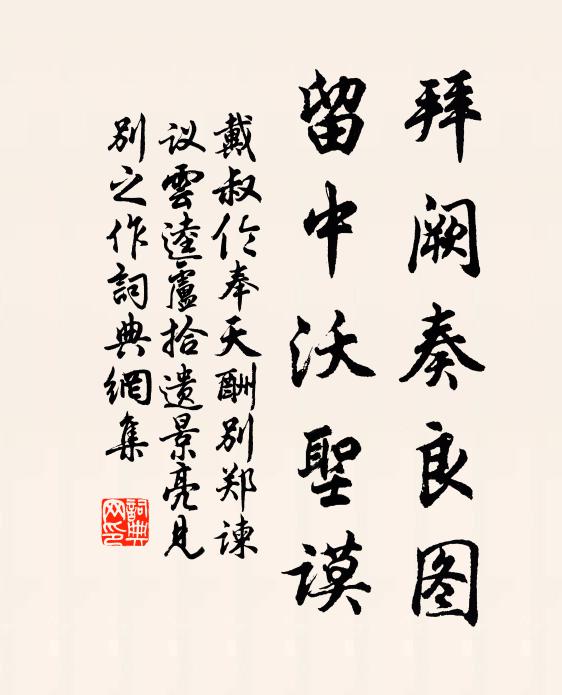 拜阙奏良图
留中沃聖谟
戴叔伦奉天酬别郑谏
议雲逵盧拾遗景亮见
别之作詞典網集
詞典网印